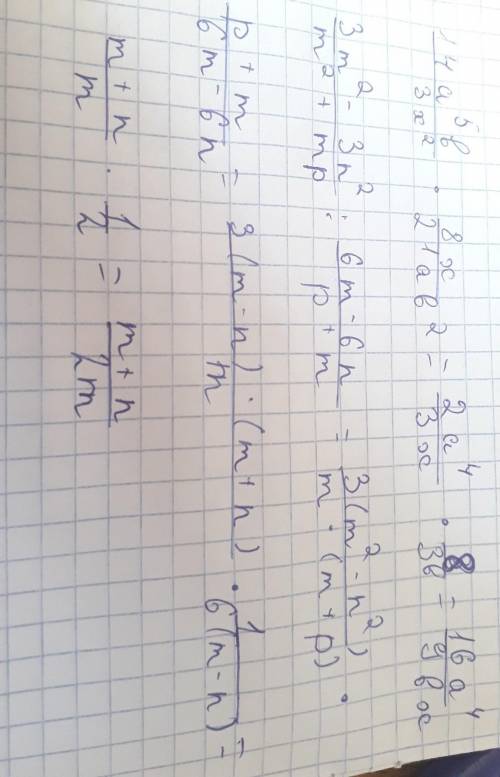 14a⁵b/3x² · 8x/21ab² = 2a⁴/3x · 8/3b = 16a⁴/9bx
3m² - 3n²/m² + mp : 6m - 6n/p + m = 3(m² - n²)/m · (m + p) ·
p + m/6m - 6n = 3(m - n) · (m + n)/m · 1/6(m - n) =
m + n/m · 1/2 = m + n/2m